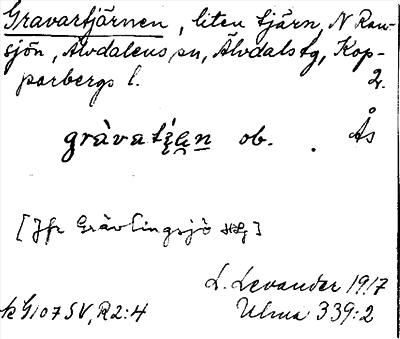 Gravartjärnen, liten tjärn, N Ran-
sjön, Älvdalens sn, Älvdals tg, Kop-
parbergs l. 2.
gràvat́ʒ̣än ob. . Ås
[Jfr Grävlingsjö HG]
L. Levander 1917
k G107 SV, R2:4 Ulma 339:2